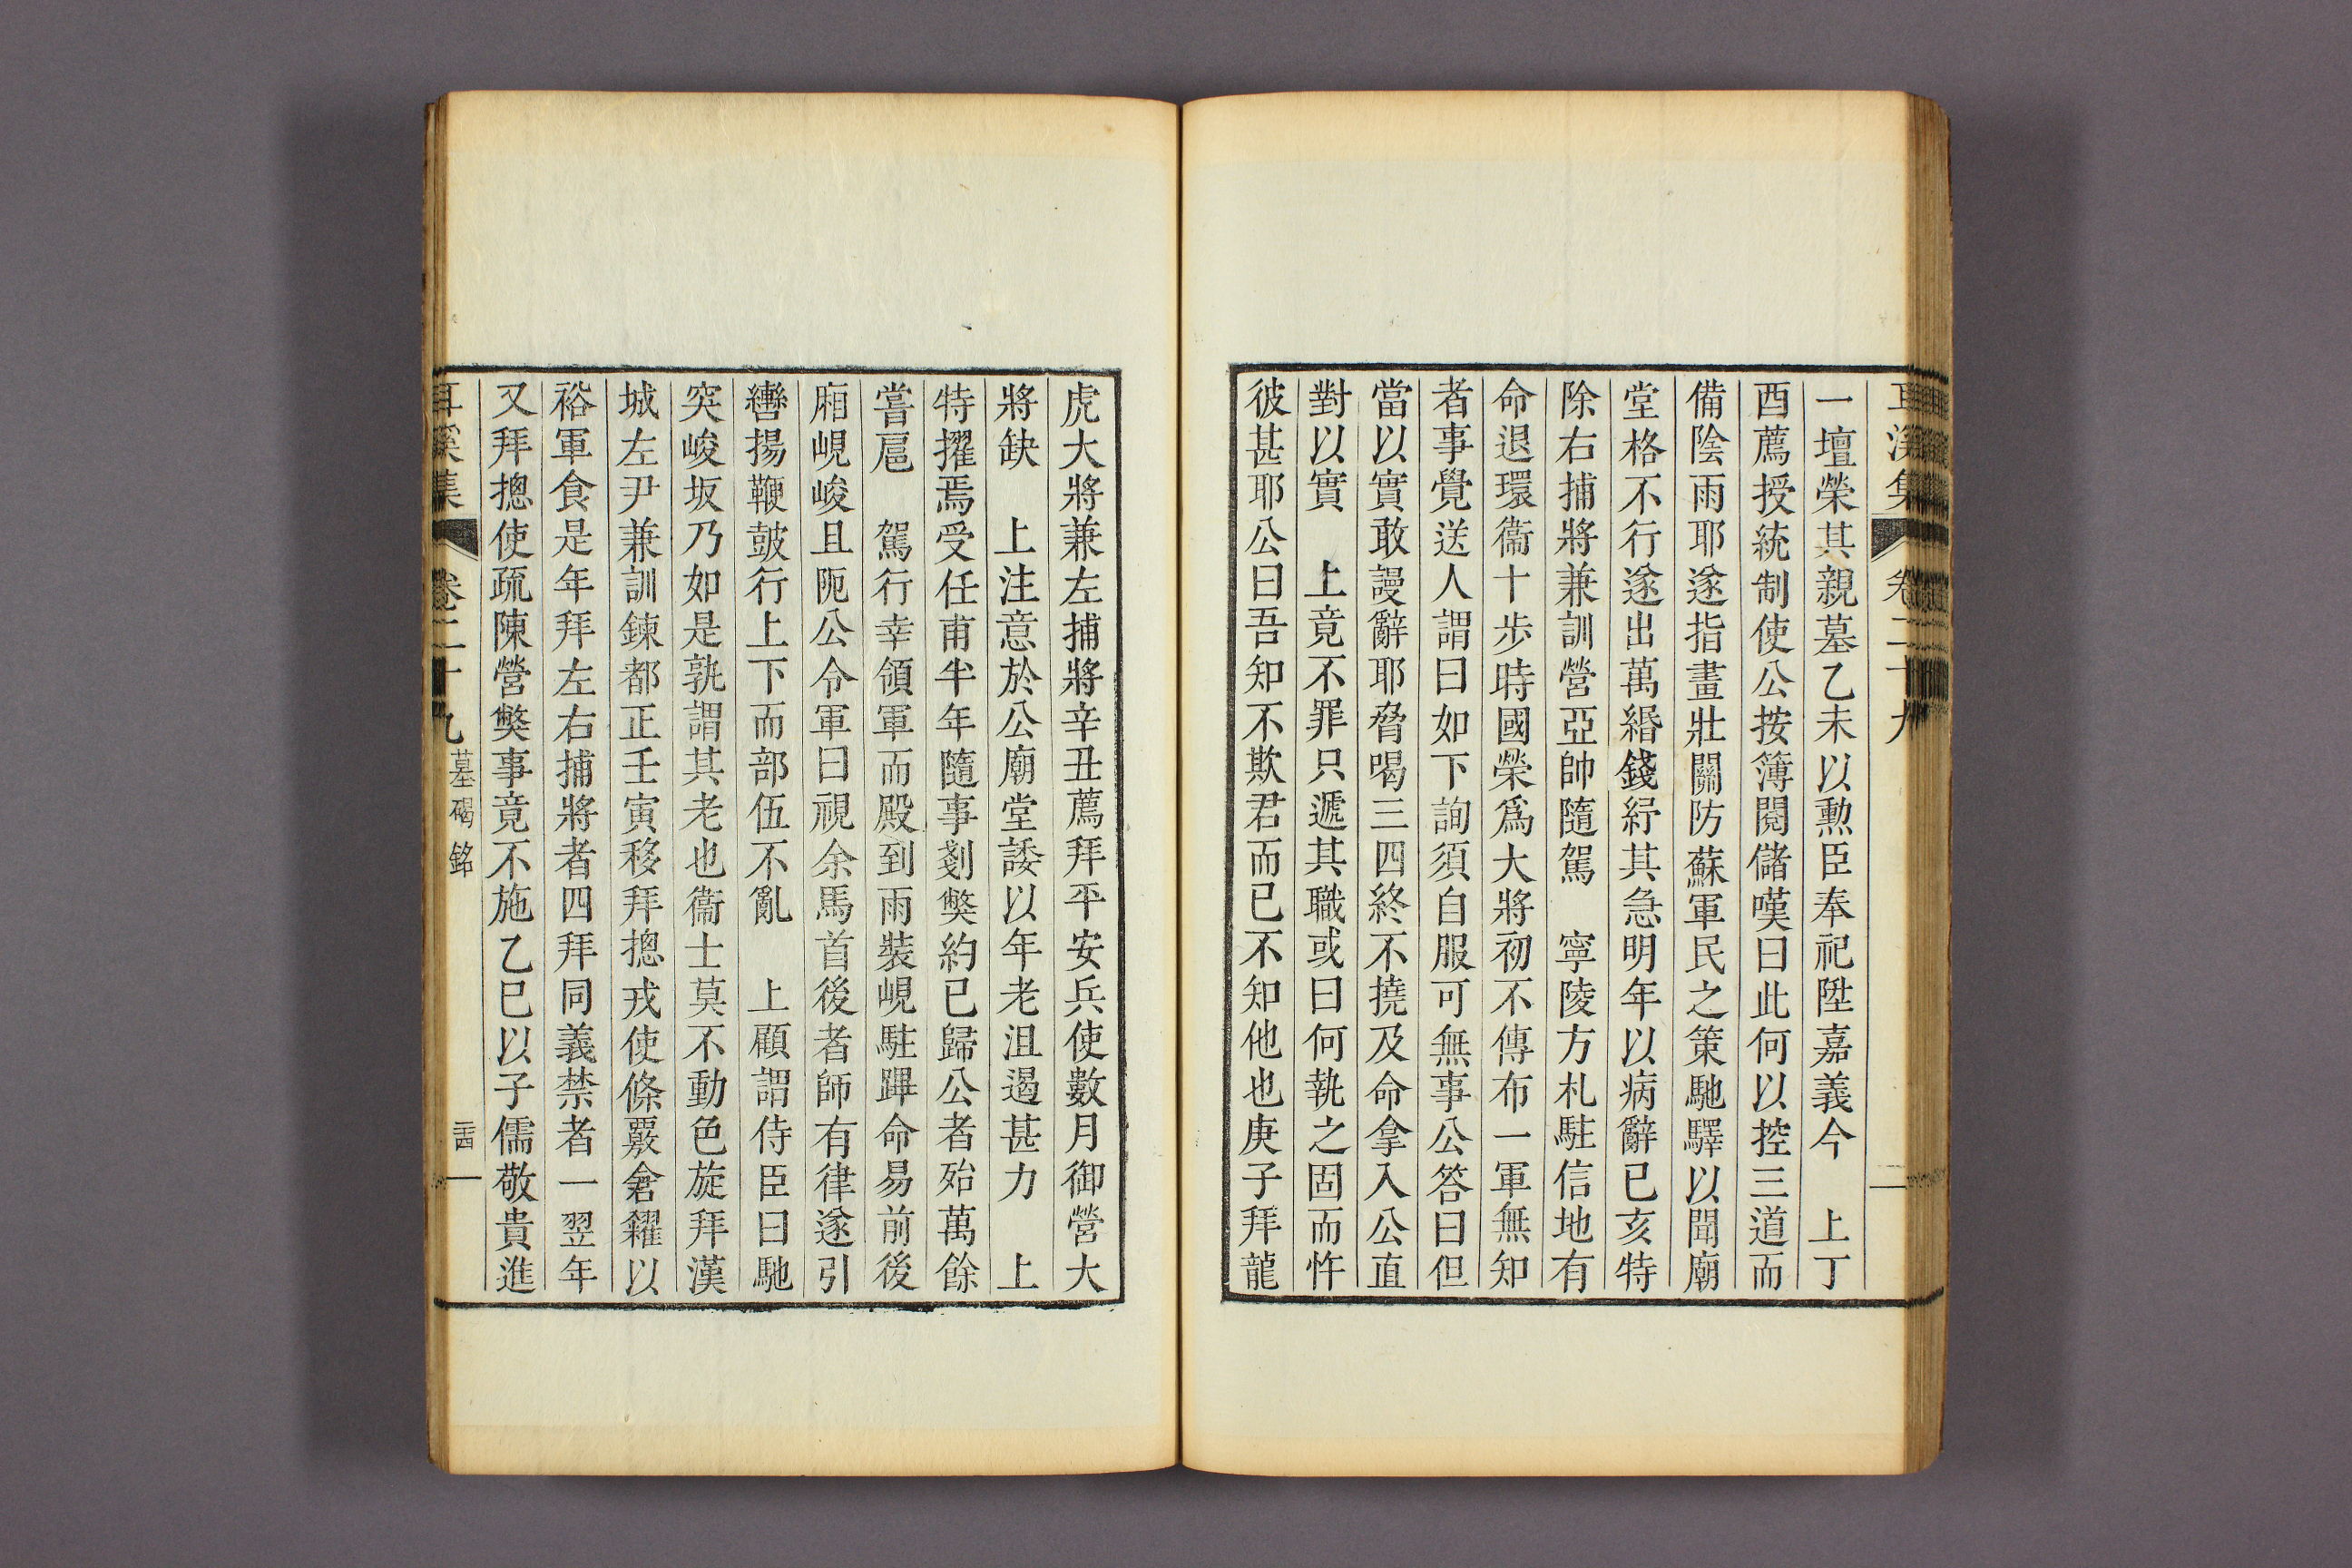 耳溪集 卷二十九
一壇榮其親墓乙未以勳臣奉祀陞嘉義今 上丁
酉薦授統制使公按簿閱儲嘆曰此何以控三道而
備陰雨耶遂指畫壯關防蘇軍民之策馳驛以聞廟
堂格不行遂出萬緡錢紓其急明年以病辭已亥特
除右捕將兼訓營亞帥隨駕 寧陵方札駐信地有
命退環衞十步時國榮爲大將初不傳布一軍無知
者事覺送人謂曰如下詢須自服可無事公答曰但
當以實敢謾辭耶脅喝三四終不撓及命拿入公直
對以實 上竟不罪只遞其職或曰何執之固而忤
彼甚耶公曰吾知不欺君而已不知他也庚子拜龍
虎大將兼左捕將辛丑薦拜平安兵使數月御營大
將缺 上注意於公廟堂諉以年老沮遏甚力 上
特擢焉受任甫半年隨事剗獘約已歸公者殆萬餘
嘗扈 駕行幸領軍而殿到雨裝峴駐蹕命易前後
廂峴峻且阨公令軍曰視余馬首後者師有律遂引
轡揚鞭皷行上下而部伍不亂 上顧謂侍臣曰馳
突峻坂乃如是孰謂其老也衞士莫不動色旋拜漢
城左尹兼訓鍊都正壬寅移拜摠戎使條覈倉糴以
裕軍食是年拜左右捕將者四拜同義禁者一翌年
又拜摠使疏陳營獘事竟不施乙巳以子儒敬貴進
耳溪集 卷二十九 墓碣銘 三四